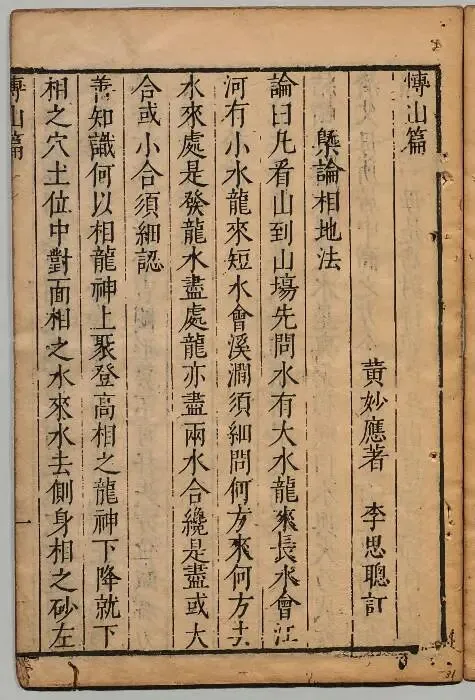 博山篇
黃妙應著　李思聰訂
槩論相地法
論曰凡看山到山塲先問水有大水龍來長水會江
河有小水龍來短水會溪澗須細問何方來何方去
水來處是發龍水盡處龍亦盡兩水合纔是盡或大
合或小合須細認
善知識何以相龍神上聚登高相之龍神下降就下
相之穴土位中對面相之水來水去側身相之砂左
博山篇
一